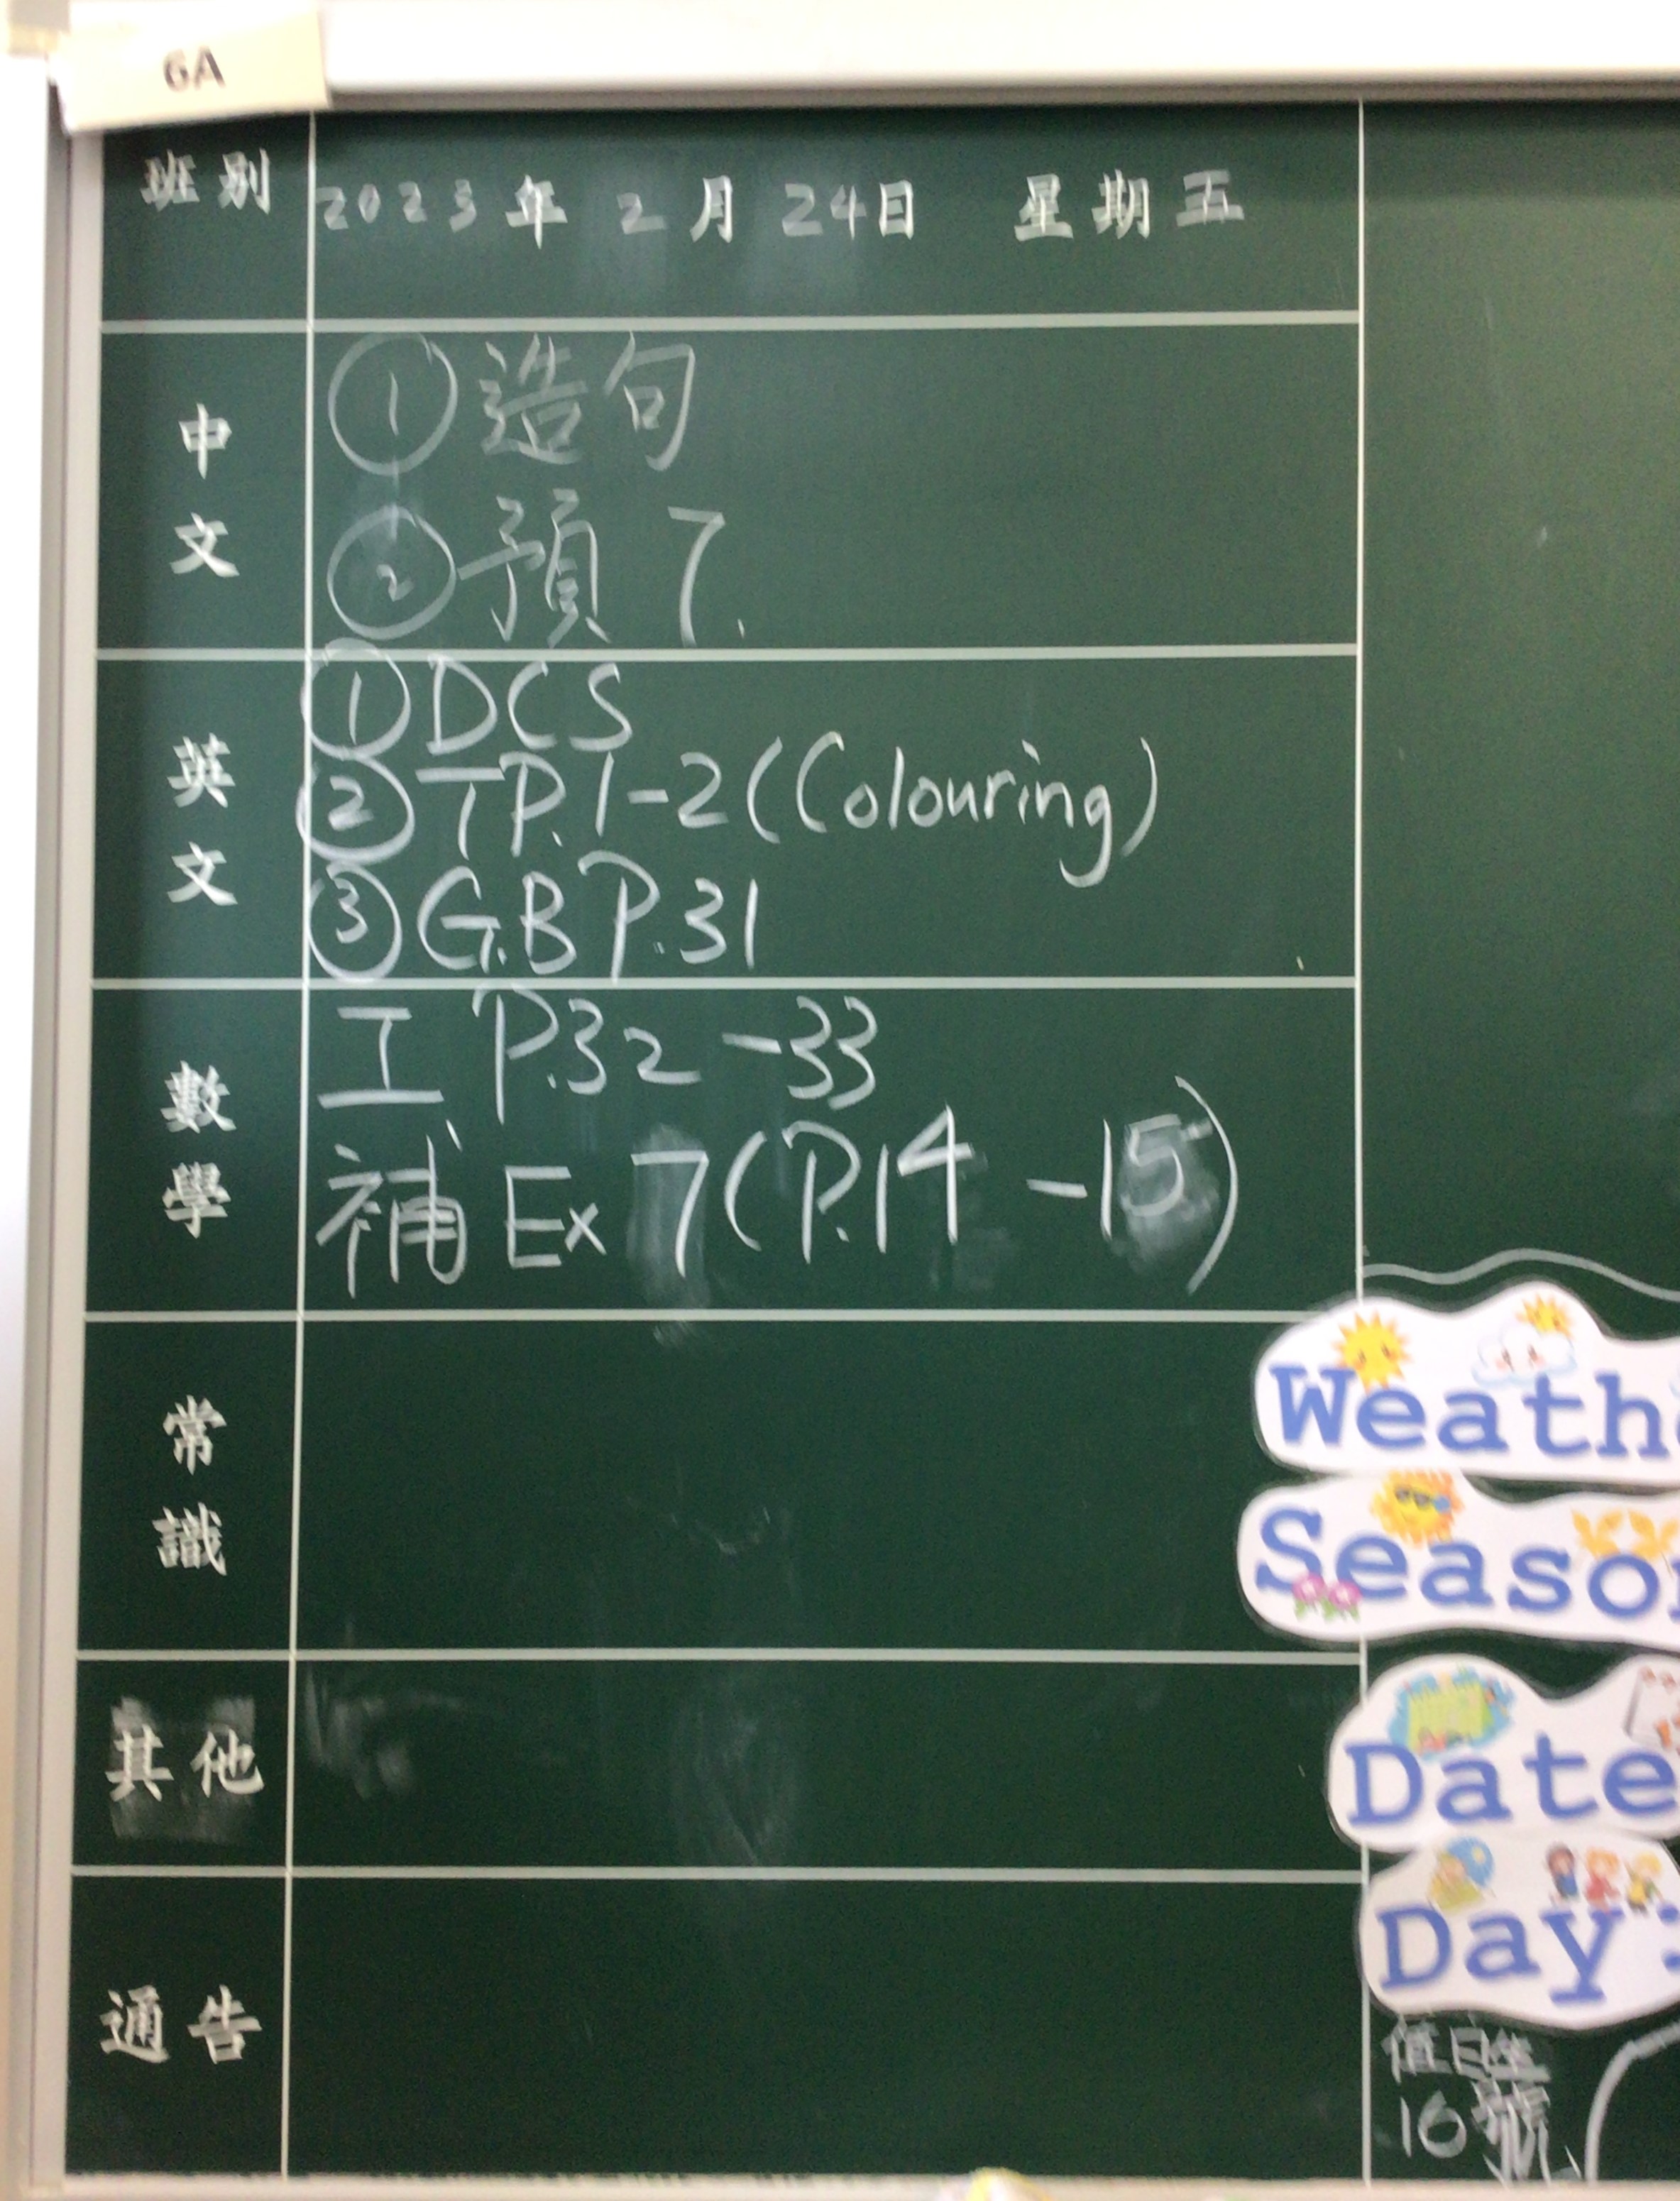 6A
班別 2023年 2月 24日 星期五
中文
① 造句
② 預 7.
英文
① DCS
② TP.1-2 (Colouring)
③ G.B P.31
數學
工 P.32-33
補 Ex 7 (P.14-15)
常識
其他
通告
Weath
Seaso
Date
Day:
值日生
16號